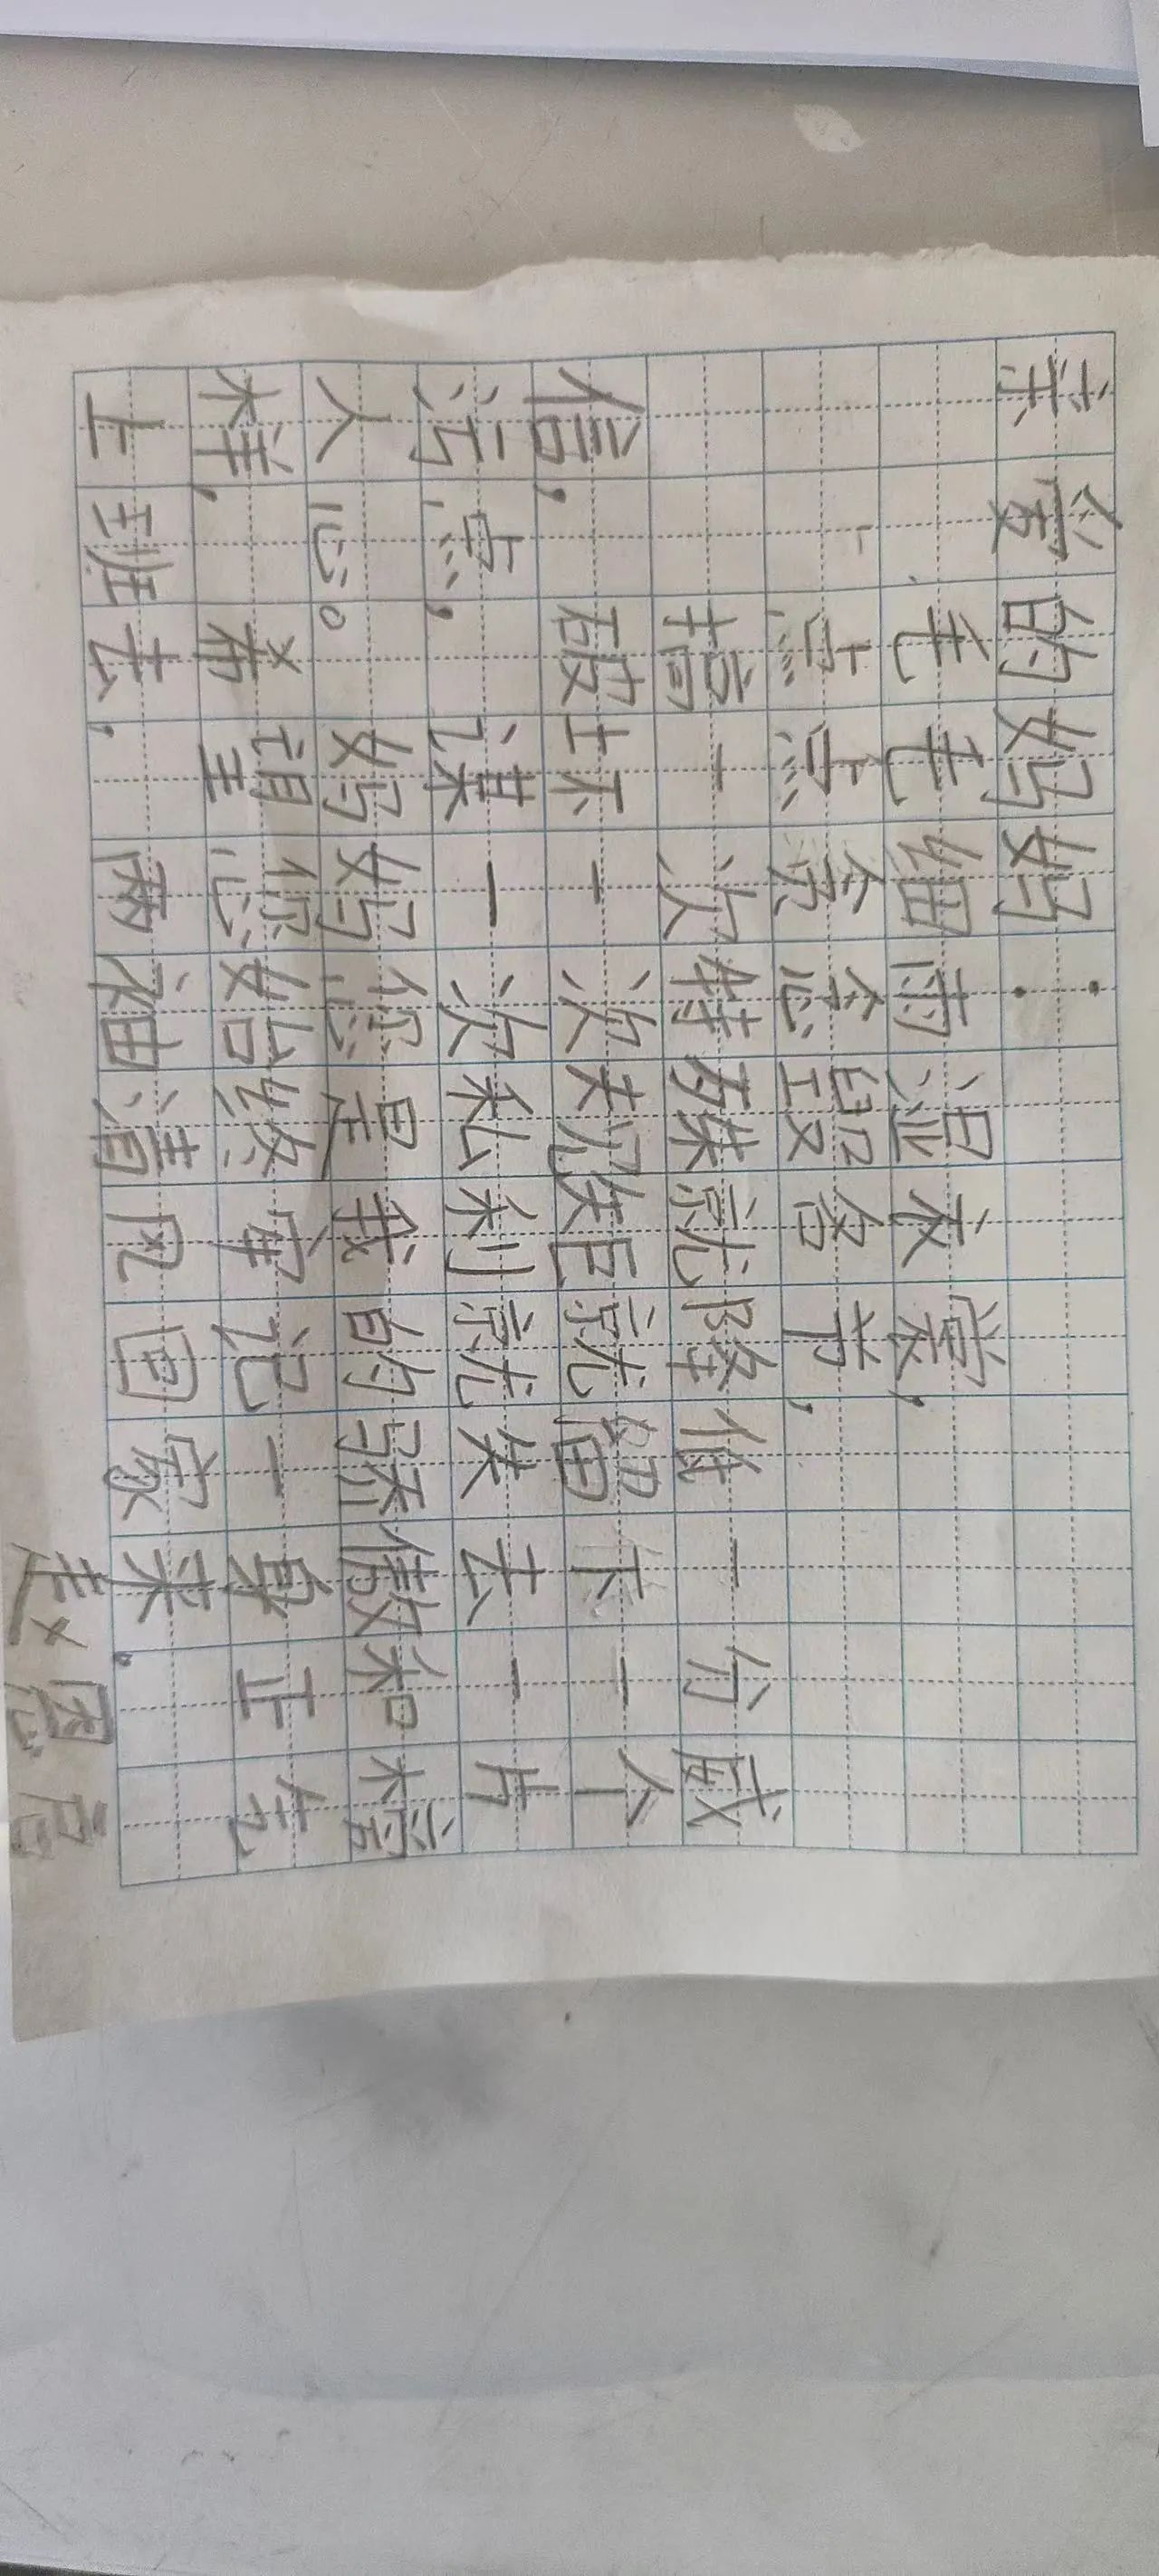 爱的妈妈:
毛毛细雨湿衣裳,
点点贪念毁名节,
搞一次特殊就降低一份威
信,破坏一次规矩就留下一个
污点,谋一次私利就失去一片
人心。妈妈您是我的骄傲和榜
样,希望您始终牢记一身正气
上班去,两袖清风回家来.
赵恩